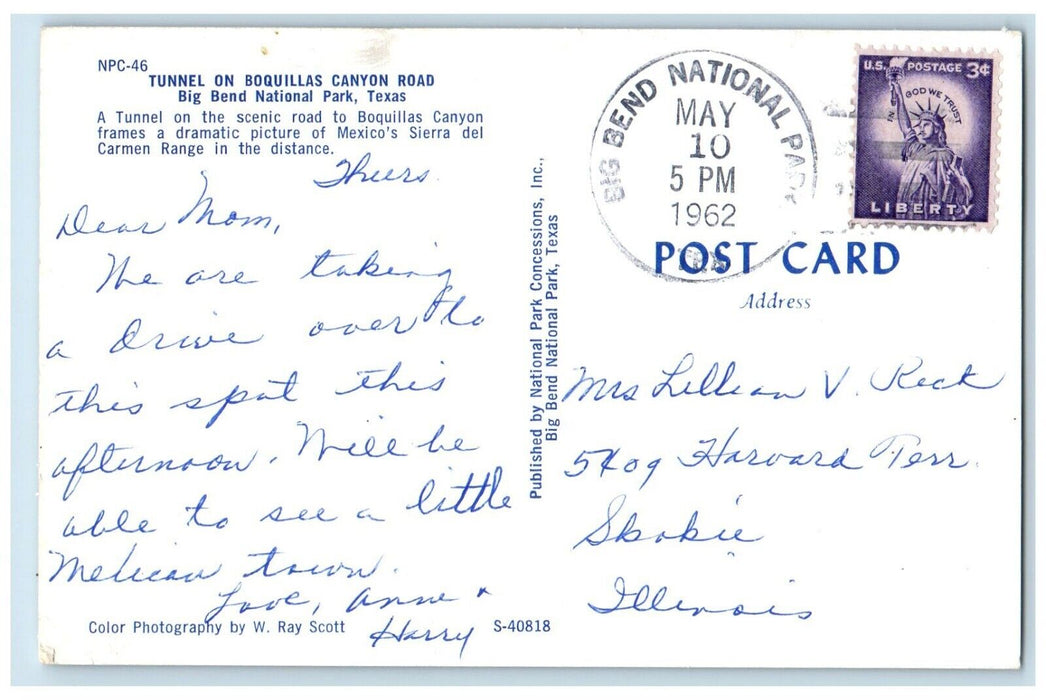 NPC-46
TUNNEL ON BOQUILLAS CANYON ROAD
Big Bend National Park, Texas
A Tunnel on the scenic road to Boquillas Canyon
frames a dramatic picture of Mexico's Sierra del
Carmen Range in the distance.
Thurs.
Dear Mom,
We are taking
a drive over to
this spot this
afternoon. Will be
able to see a little
Mexican town.
Love, Anne +
Harry
Color Photography by W. Ray Scott
S-40818
Published by National Park Concessions, Inc.,
Big Bend National Park, Texas
BIG BEND NATIONAL PARK
MAY
10
5 PM
1962
U.S. POSTAGE 3¢
IN GOD WE TRUST
LIBERTY
POST CARD
Address
Mrs Lillian V. Reck
5409 Harvard Terr.
Skokie
Illinois